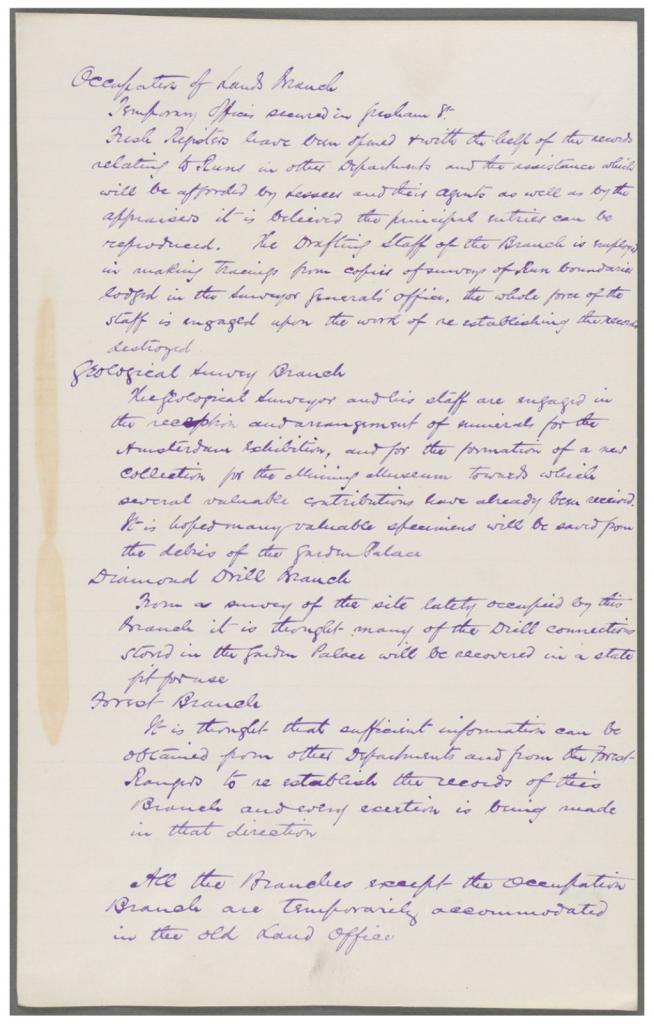 Occupation of Lands Branch
Temporary Offices secured in Gresham St.
Fresh Registers have been opened & with the help of the records
relating to Runs in other Departments and the assistance which
will be afforded by Lessees and their agents as well as by the
appraisers it is believed the principal entries can be
reproduced. The Drafting Staff of the Branch is employed
in making tracings from copies of surveys of Run boundaries
lodged in the Surveyor General's office, the whole force of the
staff is engaged upon the work of re establishing the records
destroyed.
Geological Survey Branch
The Geological Surveyor and his staff are engaged in
the reception and arrangement of minerals for the
Amsterdam Exhibition, and for the formation of a new
collection for the Mining Museum towards which
several valuable contributions have already been received.
It is hoped many valuable specimens will be saved from
the debris of the Garden Palace
Diamond Drill Branch
From a survey of the site lately occupied by this
Branch it is thought many of the Drill connections
stored in the Garden Palace will be recovered in a state
fit for use
Forest Branch
It is thought that sufficient information can be
obtained from other Departments and from the Forest
Rangers to re establish the records of this
Branch and every exertion is being made
in that direction
All the Branches except the Occupation
Branch are temporarily accommodated
in the old Land Office